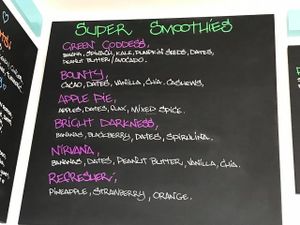 SUPER SMOOTHIES
GREEN GODDESS,
BANANA, SPINACH, KALE, PUMPKIN SEEDS, DATES,
PEANUT BUTTER/AVOCADO.
BOUNTY,
CACAO, DATES, VANILLA, CHIA, CASHEWS,
APPLE PIE,
APPLES, DATES, FLAX, MIXED SPICE.
BRIGHT DARKNESS,
BANANAS, BLUEBERRY, DATES, SPIRULINA.
NIRVANA,
BANANAS, DATES, PEANUT BUTTER, VANILLA, CHIA.
REFRESHER,
PINEAPPLE, STRAWBERRY, ORANGE.